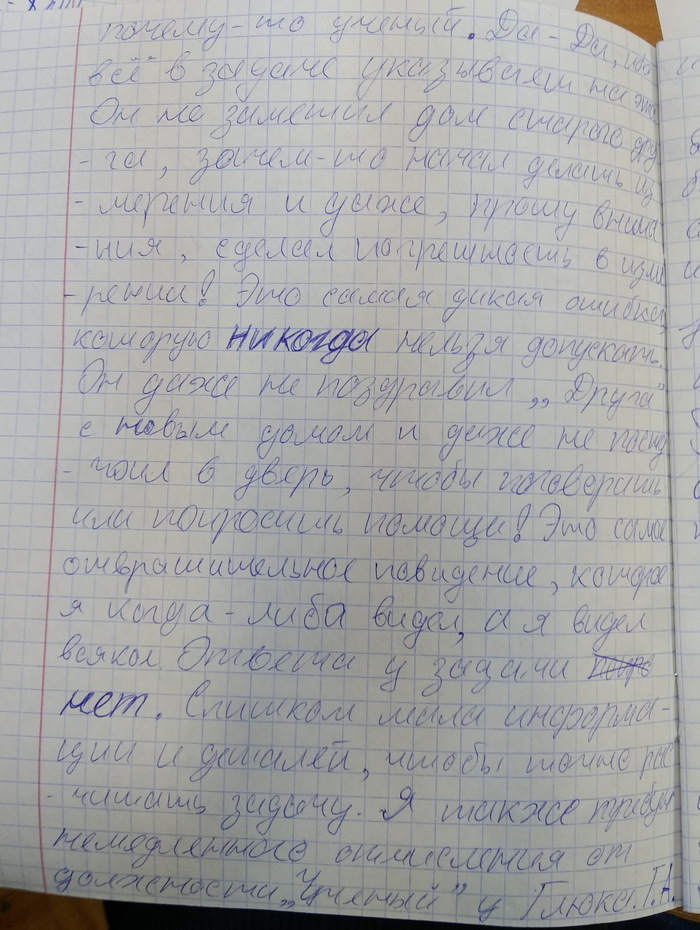 почему-то ученый. Да-Да, ибо
всё в задаче указывает на это
Он не заметил дом старого дру
-га, зачем-то начал делать из
-мерения и даже, прошу внима
-ния, сделал погрешность в изме
-рении! Это самая дикая ошибка,
которую никогда нельзя допускать.
Он даже не поздравил „Друга"
с новым домом и даже не посту
-чал в дверь, чтобы поговорить
или попросить помощи! Это самое
отвратительное поведение, которое
я когда-либо видел, а я видел
всякое. Ответа у задачи
нет. Слишком мало информа-
ции и деталей, чтобы точно рас
-читать задачу. Я также требую
немедленного отчисления от
должности „Ученый" у Глюка.Г.А.